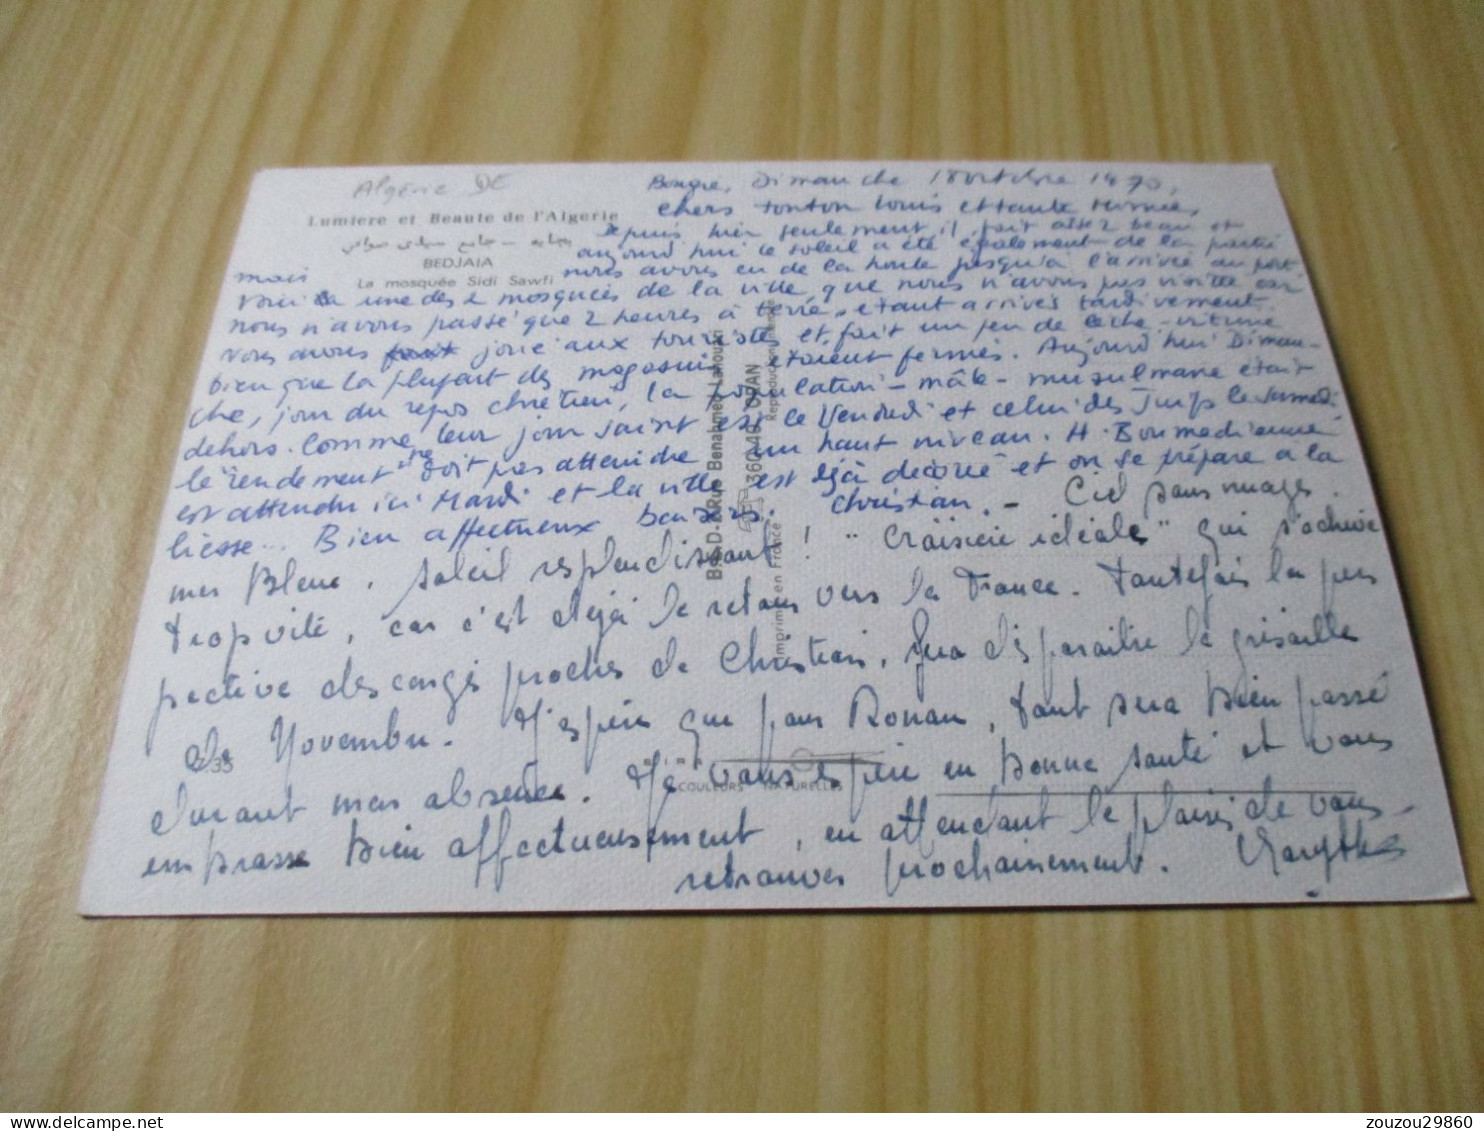 Algérie DE
Lumière et Beauté de l'Algérie
بجاية - جامع سيدي صوافي
BEDJAIA
La mosquée Sidi Sawfi
Bougie, Dimanche 18 octobre 1970,
chers tonton Louis et tante
depuis hier seulement, il fait assez beau et
aujourd'hui le soleil a été également de la partie
mais nous avons eu de la houle jusqu'à l'arrivée au port.
Voici une des 2 mosquées de la ville que nous n'avons pas visitée car
nous n'avons passé que 2 heures à terre, étant arrivés tardivement.
Nous avons joué aux touristes et fait un peu de lèche-vitrine
bien que la plupart des magasins étaient fermés. Aujourd'hui Diman-
che, jour du repos chrétien, la population - mâle - musulmane était
dehors. Comme leur jour saint est le Vendredi et celui des Juifs le Samedi,
le rendement ne doit pas atteindre un haut niveau. H. Boumedienne
est attendu ici Mardi et la ville est déjà décorée et on se prépare à la
liesse... Bien affectueux baisers. Christian. - Ciel sans nuages.
mer Bleue, soleil resplendissant ! "Croisière idéale" qui s'achève
trop vite, car c'est déjà le retour vers la France. Toutefois la pers
pective des congés proches de Christian, fera disparaître la grisaille
de Novembre. J'espère que pour Ronan, tout sera bien passé
durant mon absence. Je vous espère en bonne santé et vous
embrasse bien affectueusement, en attendant le plaisir de vous
retrouver prochainement.
B.S.D. - Rue Benahmed Lahouari
36040 ORAN
Imprimé en France
Reproduction interdite
35
COULEURS NATURELLES
zouzou29860